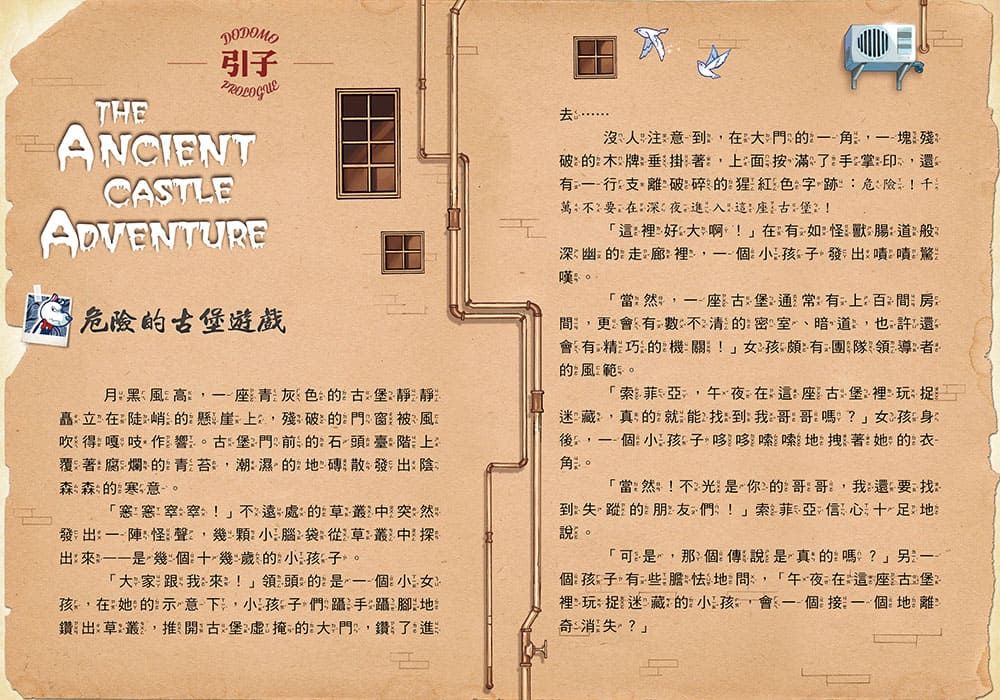 DODOMO
引子
PROLOGUE
THE
ANCIENT
CASTLE
ADVENTURE
危險的古堡遊戲
月黑風高，一座青灰色的古堡靜靜
矗立在陡峭的懸崖上，殘破的門窗被風
吹得嘎吱作響。古堡門前的石頭臺階上
覆著腐爛的青苔，潮濕的地磚散發出陰
森森的寒意。
「窸窸窣窣！」不遠處的草叢中突然
發出一陣怪聲，幾顆小腦袋從草叢中探
出來——是幾個十幾歲的小孩子。
「大家跟我來！」領頭的是一個小女
孩，在她的示意下，小孩子們躡手躡腳地
鑽出草叢，推開古堡虛掩的大門，鑽了進
去……
沒人注意到，在大門的一角，一塊殘
破的木牌垂掛著，上面按滿了手掌印，還
有一行支離破碎的猩紅色字跡：危險！千
萬不要在深夜進入這座古堡！
「這裡好大啊！」在有如怪獸腸道般
深幽的走廊裡，一個小孩子發出嘖嘖驚
嘆。
「當然，一座古堡通常有上百間房
間，更會有數不清的密室、暗道，也許還
會有精巧的機關！」女孩頗有團隊領導者
的風範。
「索菲亞，午夜在這座古堡裡玩捉
迷藏，真的就能找到我哥哥嗎？」女孩身
後，一個小孩子哆哆嗦嗦地拽著她的衣
角。
「當然！不光是你的哥哥，我還要找
到失蹤的朋友們！」索菲亞信心十足地
說。
「可是，那個傳說是真的嗎？」另一
個孩子有些膽怯地問，「午夜在這座古堡
裡玩捉迷藏的小孩，會一個接一個地離
奇消失？」